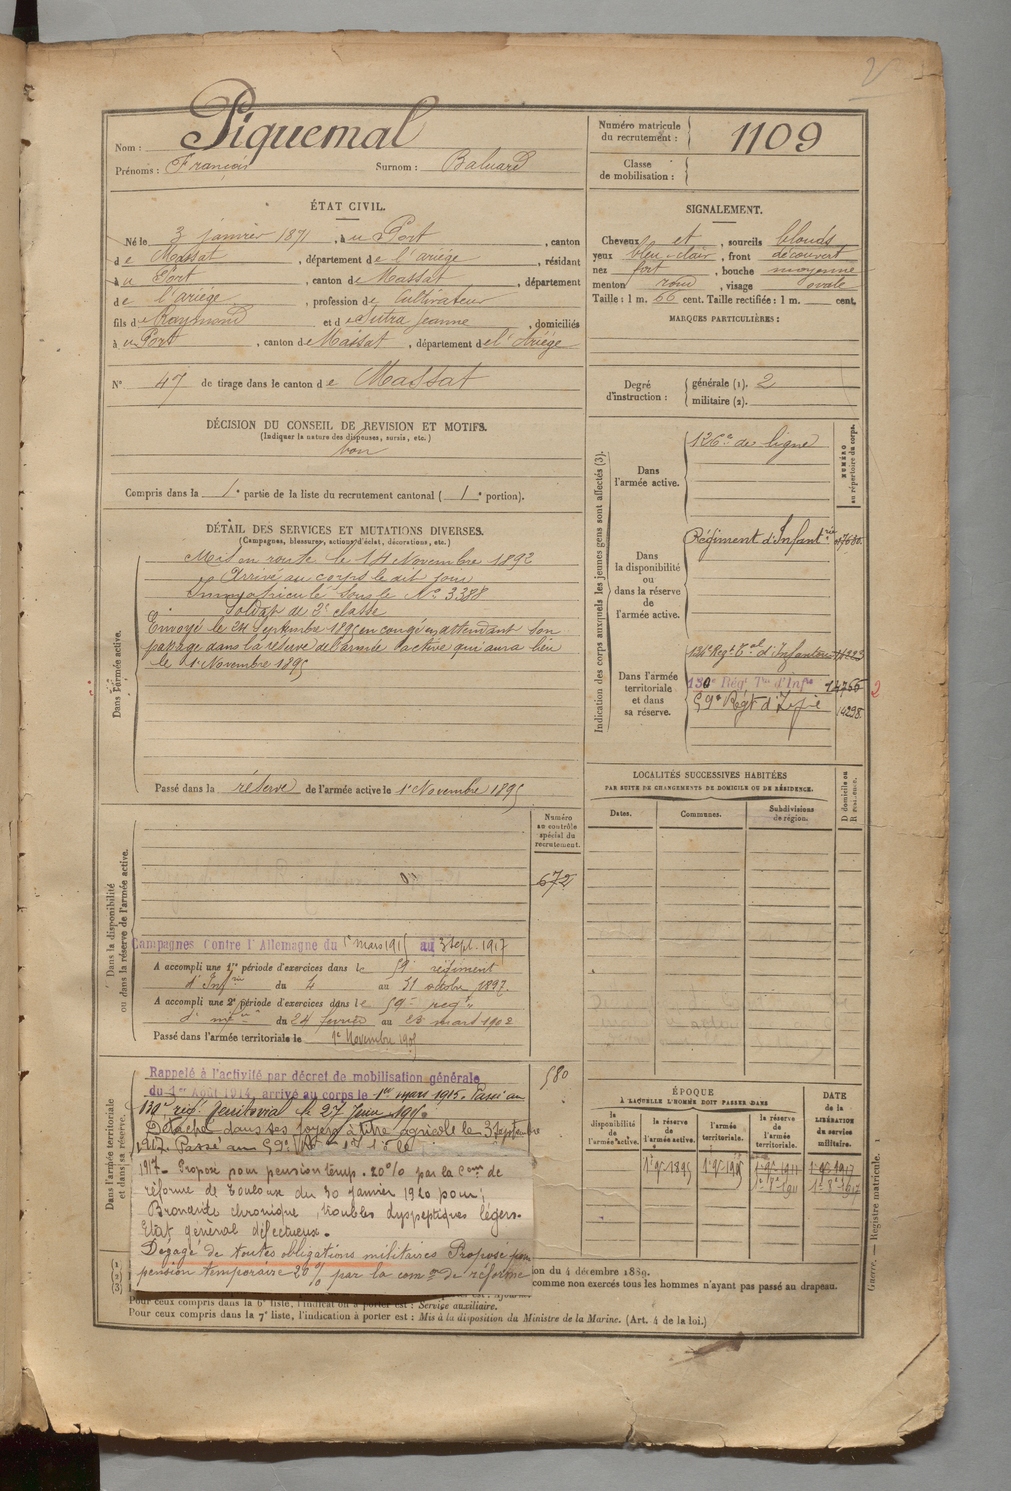 Nom : Piquemal
Prénoms : François Surnom : Baluard
Numéro matricule du recrutement : 1109
Classe de mobilisation :
ÉTAT CIVIL.
Né le 3 janvier 1871, à u Port, canton
de Massat, département de l'ariége, résidant
à u Port, canton de Massat, département
de l'ariége, profession de Cultivateur
fils de Raymond et de Sutra Jeanne, domiciliés
à u Port, canton de Massat, département de l'Ariége
N° 47 de tirage dans le canton de Massat
SIGNALEMENT.
Cheveux et, sourcils blonds
yeux bleu-clair, front découvert
nez fort, bouche moyenne
menton rond, visage ovale
Taille : 1 m. 66 cent. Taille rectifiée : 1 m. cent.
MARQUES PARTICULIÈRES :
Degré d'instruction : générale (1). 2
militaire (2).
DÉCISION DU CONSEIL DE REVISION ET MOTIFS.
(Indiquer la nature des dispenses, sursis, etc.)
bon
Compris dans la 1e partie de la liste du recrutement cantonal ( 1e portion).
DÉTAIL DES SERVICES ET MUTATIONS DIVERSES.
(Campagnes, blessures, actions d'éclat, décorations, etc.)
Dans l'armée active.
Mis en route le 14 Novembre 1892
Arrivé au corps le dit jour
Immatriculé sous le N° 3388
Soldat de 2e classe
Envoyé le 24 Septembre 1895 en congé en attendant son
passage dans la réserve de l'armée active qui aura lieu
le 1r Novembre 1895
Passé dans la réserve de l'armée active le 1r Novembre 1895
Indication des corps auxquels les jeunes gens sont affectés (3).
NUMÉRO au répertoire du corps.
Dans l'armée active.
126e de ligne
Dans la disponibilité ou dans la réserve de l'armée active.
Régiment d'Infantrie
Dans l'armée territoriale et dans sa réserve.
134e Regt Tal d'Infanterie
130e Rég. Tal d'Infie 14766 2
59e Régt d'Infie 14298
LOCALITÉS SUCCESSIVES HABITÉES
PAR SUITE DE CHANGEMENTS DE DOMICILE OU DE RÉSIDENCE.
Dates. Communes. Subdivisions de région. D domicile ou R résidence.
Dans la disponibilité ou dans la réserve de l'armée active.
Numéro au contrôle spécial du recrutement.
672
Campagnes Contre l'Allemagne du 1r mars 1915 au 3 Sept. 1917
A accompli une 1re période d'exercices dans le 59e régiment
d'Infrie du 4 au 31 octobre 1897.
A accompli une 2e période d'exercices dans le 59e regt
d'infrie du 24 février au 23 mars 1902
Passé dans l'armée territoriale le 1r Novembre 1905
Dans l'armée territoriale et dans sa réserve.
580
Rappelé à l'activité par décret de mobilisation générale
du 1er Août 1914, arrivé au corps le 1er mars 1915. Passé au
130e rég. Territorial le 27 Juin
Détaché dans ses foyers à titre agricole le 3 Septembre
1917. Passé au 59e
1917 - Proposé pour pension temp. 20% par la Com de
réforme de Toulouse du 30 Janvier 1920 pour ;
Bronchite chronique, troubles dyspeptiques légers.
Etat général défectueux.
Dégagé de toutes obligations militaires Proposé pour
pension temporaire 20% par la com on de réforme
ÉPOQUE
À LAQUELLE L'HOMME DOIT PASSER DANS
la disponibilité de l'armée active. la réserve de l'armée active. l'armée territoriale. la réserve de l'armée territoriale.
DATE de la LIBÉRATION du service militaire.
1r 9e 1895
on du 4 décembre 1889.
comme non exercés tous les hommes n'ayant pas passé au drapeau.
Pour ceux compris dans la 6e liste, l'indication à porter est : Service auxiliaire.
Pour ceux compris dans la 7e liste, l'indication à porter est : Mis à la disposition du Ministre de la Marine. (Art. 4 de la loi.)
Guerre. — Registre matricule. 1